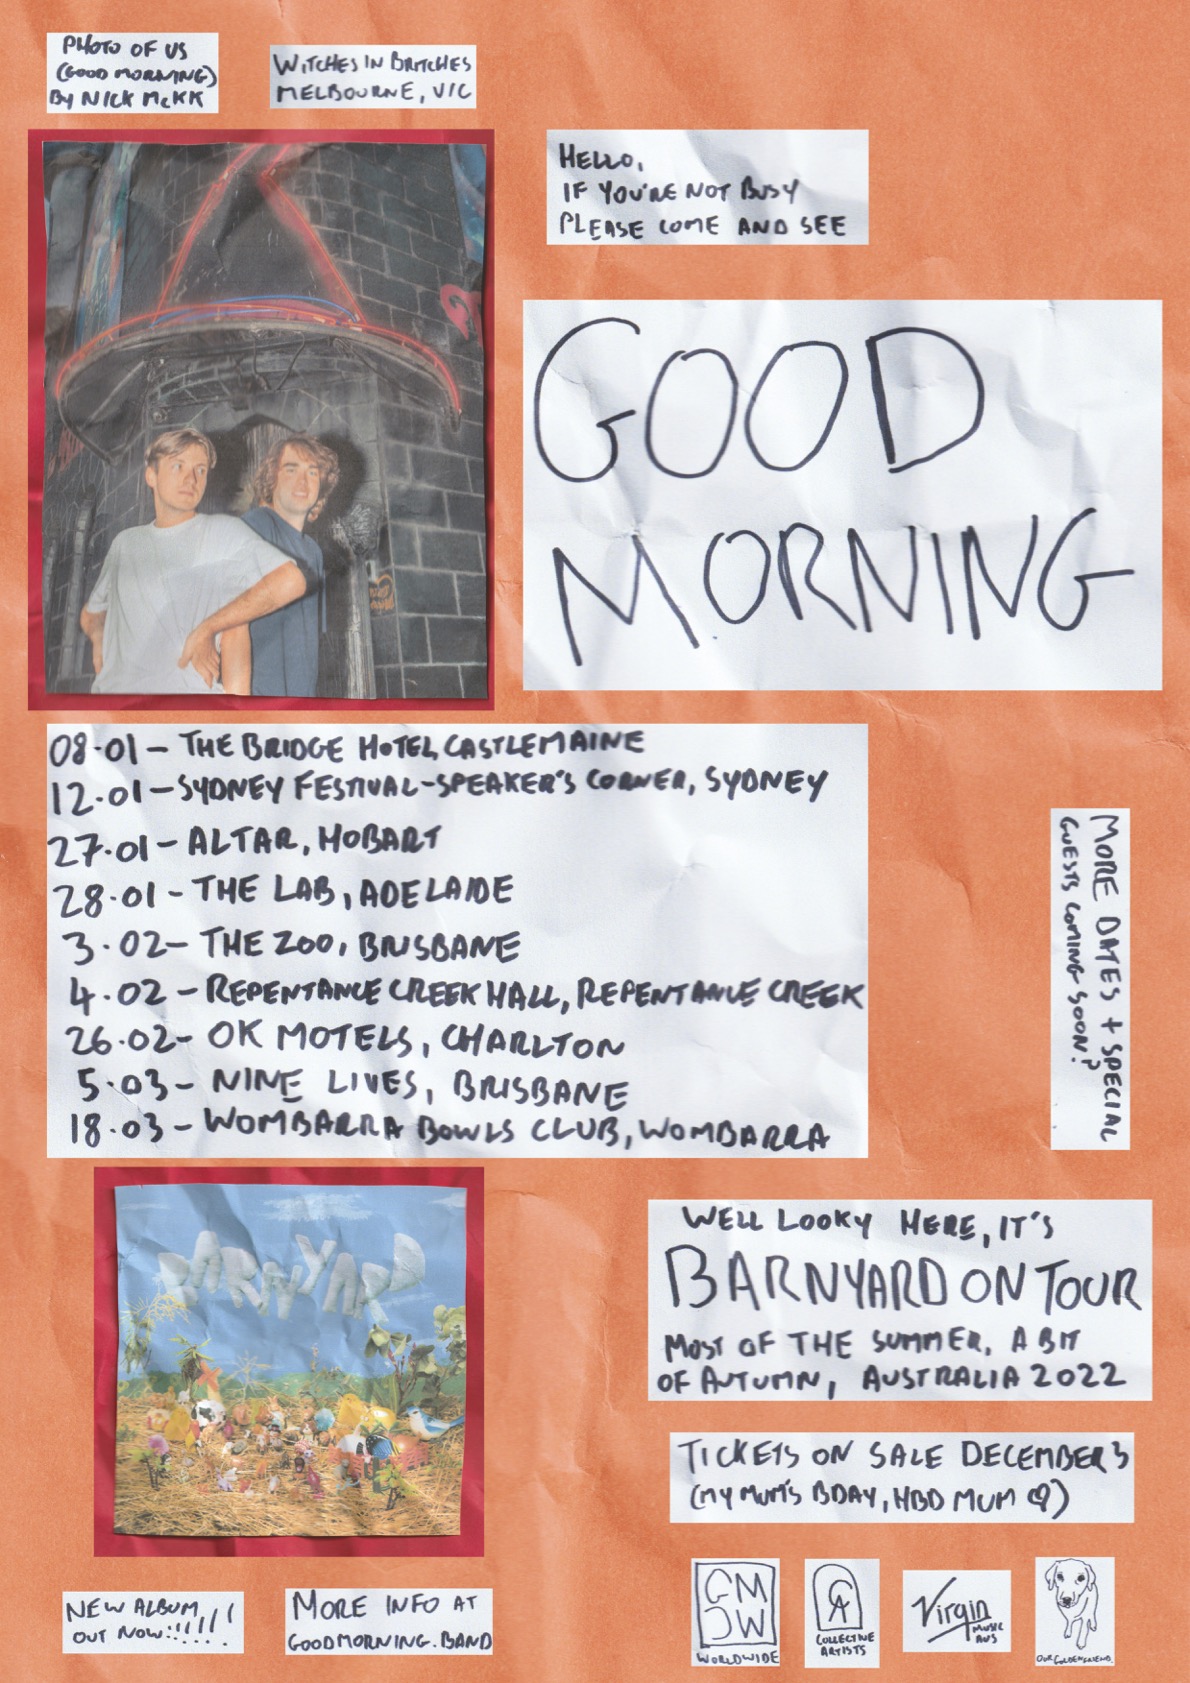 PHOTO OF US
(GOOD MORNING)
BY NICK MCKK
WITCHES IN BRITCHES
MELBOURNE, VIC
HELLO,
IF YOU'RE NOT BUSY
PLEASE COME AND SEE
GOOD
MORNING
08.01 - THE BRIDGE HOTEL, CASTLEMAINE
12.01 - SYDNEY FESTIVAL - SPEAKER'S CORNER, SYDNEY
27.01 - ALTAR, HOBART
28.01 - THE LAB, ADELAIDE
3.02 - THE ZOO, BRISBANE
4.02 - REPENTANCE CREEK HALL, REPENTANCE CREEK
26.02 - OK MOTELS, CHARLTON
5.03 - NINE LIVES, BRISBANE
18.03 - WOMBARRA BOWLS CLUB, WOMBARRA
MORE DATES + SPECIAL
GUESTS COMING SOON?
BARNYARD
WELL LOOKY HERE, IT'S
BARNYARD ON TOUR
MOST OF THE SUMMER, A BIT
OF AUTUMN, AUSTRALIA 2022
TICKETS ON SALE DECEMBER 3
(MY MUM'S BDAY, HBD MUM ♡)
NEW ALBUM
OUT NOW!!!!!!
MORE INFO AT
GOODMORNING.BAND
GM
CW
WORLDWIDE
CA
COLLECTIVE
ARTISTS
Virgin
MUSIC
AUS
OUR GOLDEN FRIEND.